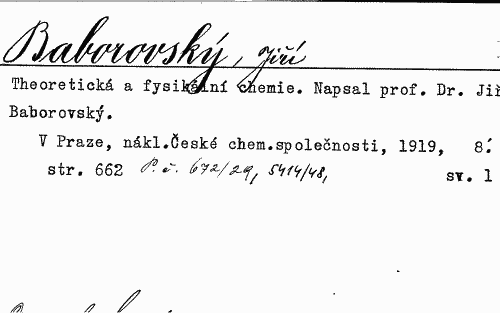 Baborovský, Jiří
Theoretická a fysikální chemie. Napsal prof. Dr. Jiř
Baborovský.
V Praze, nákl.České chem.společnosti, 1919, 8:
str. 662 P. č. 672/29, 5414/48,
sv. 1